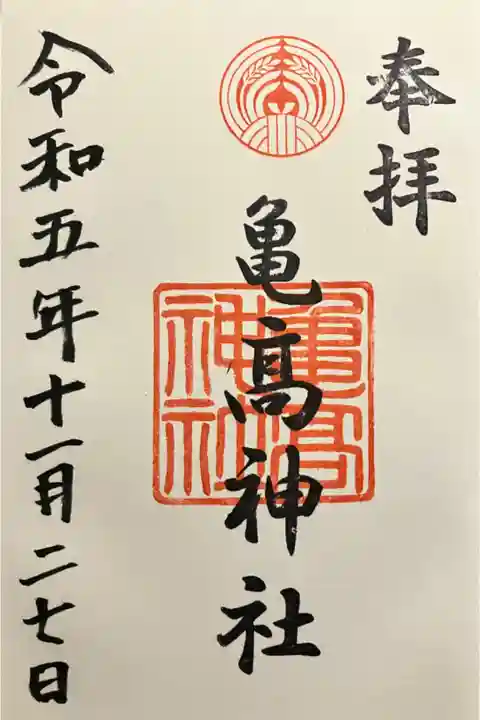 奉拝
亀高神社
亀高神社
令和五年十一月二七日